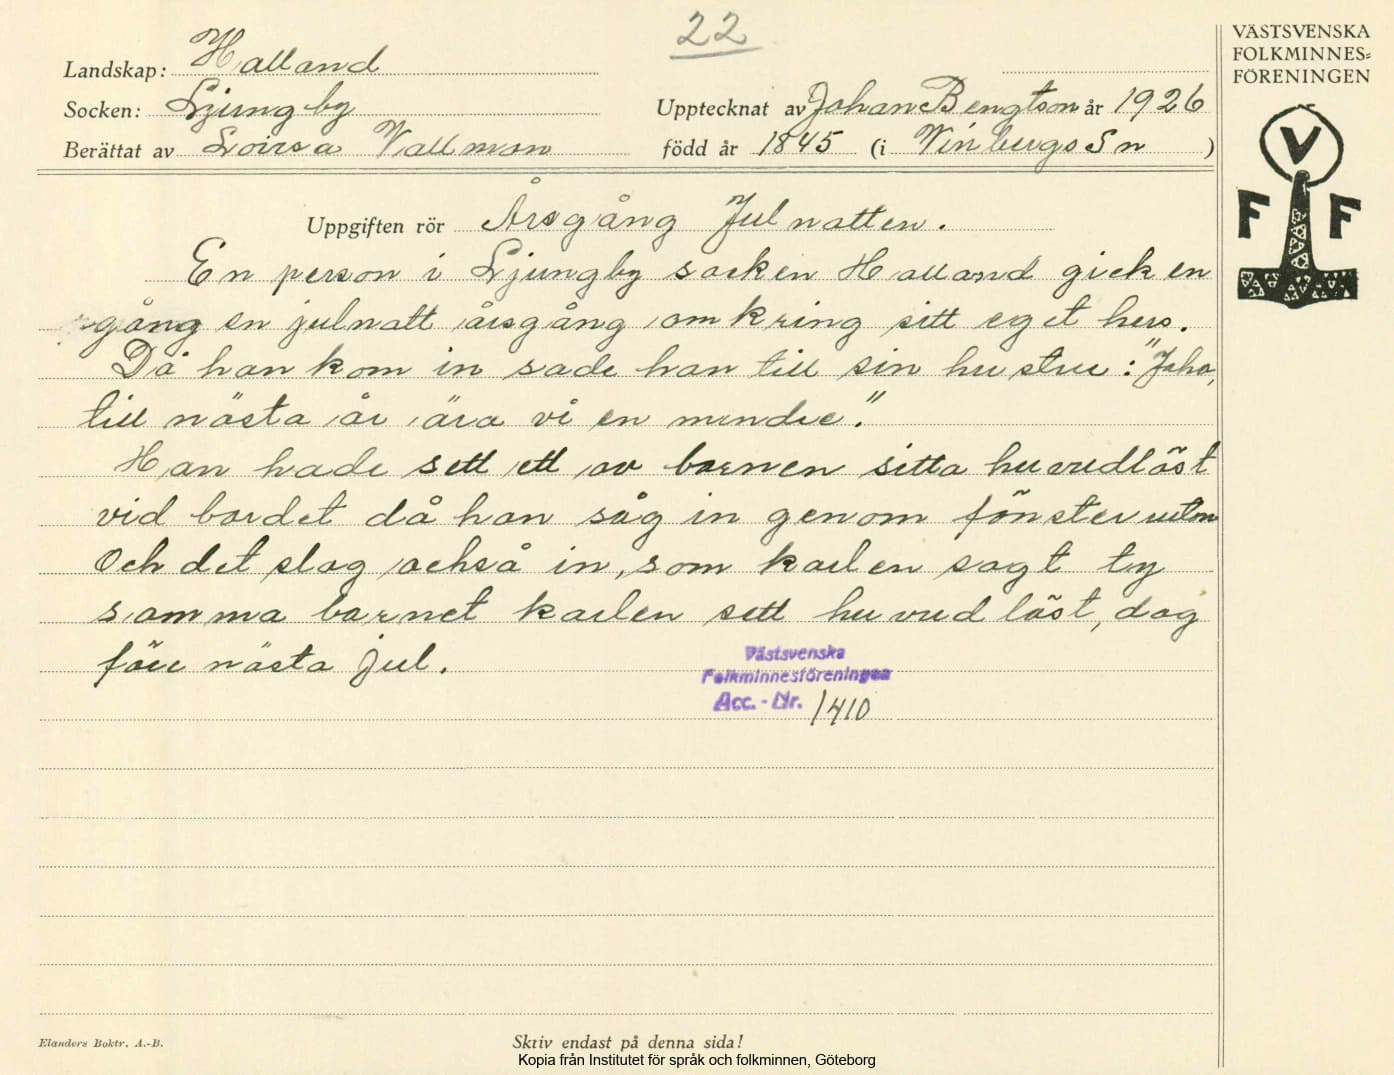 22
VÄSTSVENSKA
FOLKMINNES=
FÖRENINGEN
V
F F
Landskap: Halland
Socken: Ljungby
Upptecknat av Johan Bengtson år 1926
Berättat av Lovisa Vallman
född år 1845 (i Vinbergs Sn )
Uppgiften rör Årsgång Julnatten.
En person i Ljungby socken Halland gick en
gång en julnatt årsgång omkring sitt eget hus.
Då han kom in sade han till sin hustru: "Jaha,
till nästa år ära vi en mindre."
Han hade sett ett av barnen sitta huvudlöst
vid bordet då han såg in genom fönsterrutan
Och det slog också in, som karlen sagt ty
samma barnet karlen sett huvudlöst, dog
före nästa jul.
Västsvenska
Folkminnesföreningen
Acc. - Nr. 1410
Elanders Boktr. A.-B.
Skriv endast på denna sida!
Kopia från Institutet för språk och folkminnen, Göteborg